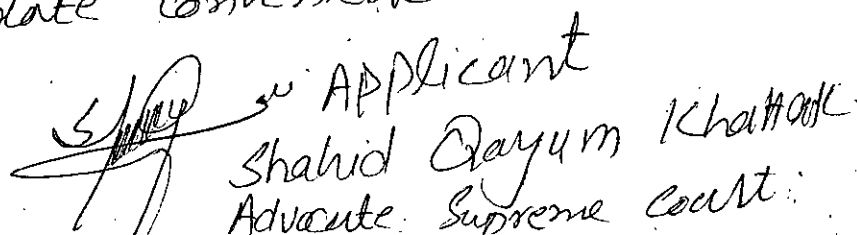 Applicant
Shahid Qayum Khattak.
Advocate Supreme Court.